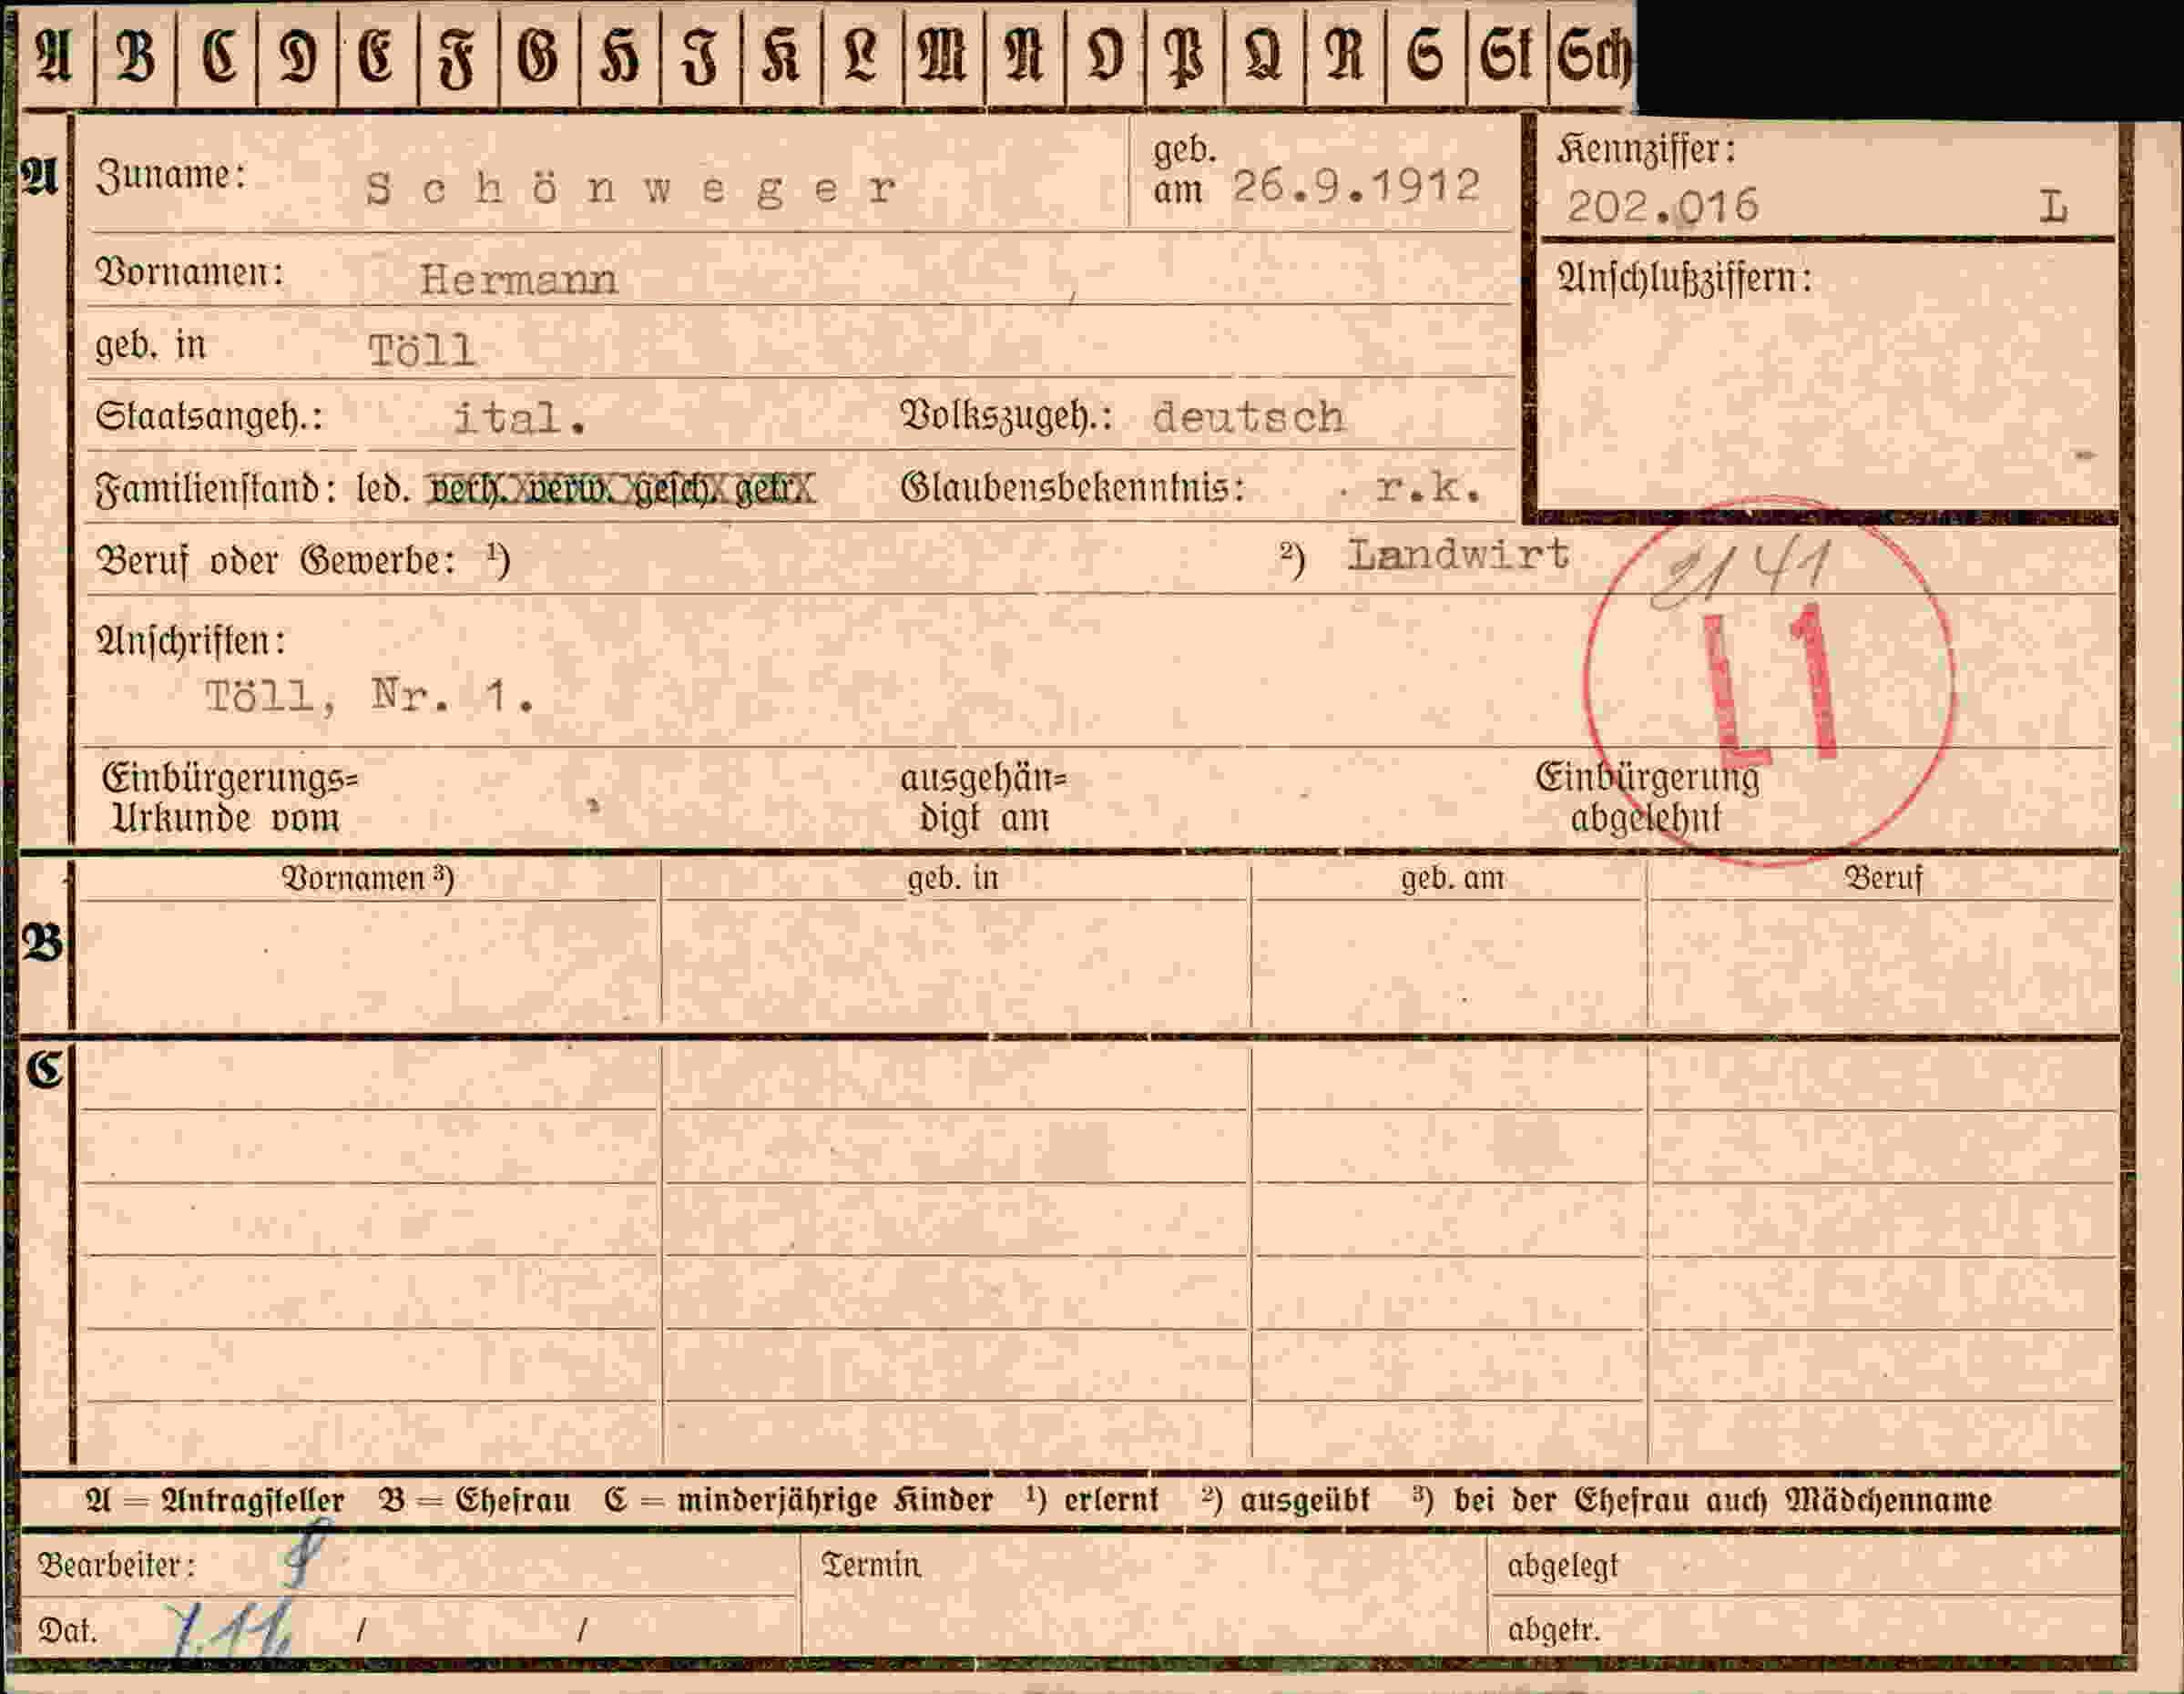 A B C D E F G H J K L M N O P Q R S St Sch
A
Zuname: Schönweger geb. am 26.9.1912
Kennziffer:
202.016 L
Vornamen: Hermann
Anschlußziffern:
geb. in Töll
Staatsangeh.: ital. Volkszugeh.: deutsch
Familienstand: led. verh. verw. gesch. getr. Glaubensbekenntnis: r.k.
Beruf oder Gewerbe: ¹) ²) Landwirt
2141
L1
Anschriften:
Töll, Nr. 1.
Einbürgerungs=
Urkunde vom
ausgehän=
digt am
Einbürgerung
abgelehnt
B
Vornamen ³) geb. in geb. am Beruf
C
A = Antragsteller B = Ehefrau C = minderjährige Kinder ¹) erlernt ²) ausgeübt ³) bei der Ehefrau auch Mädchenname
Bearbeiter: Termin abgelegt
Dat. / / abgetr.